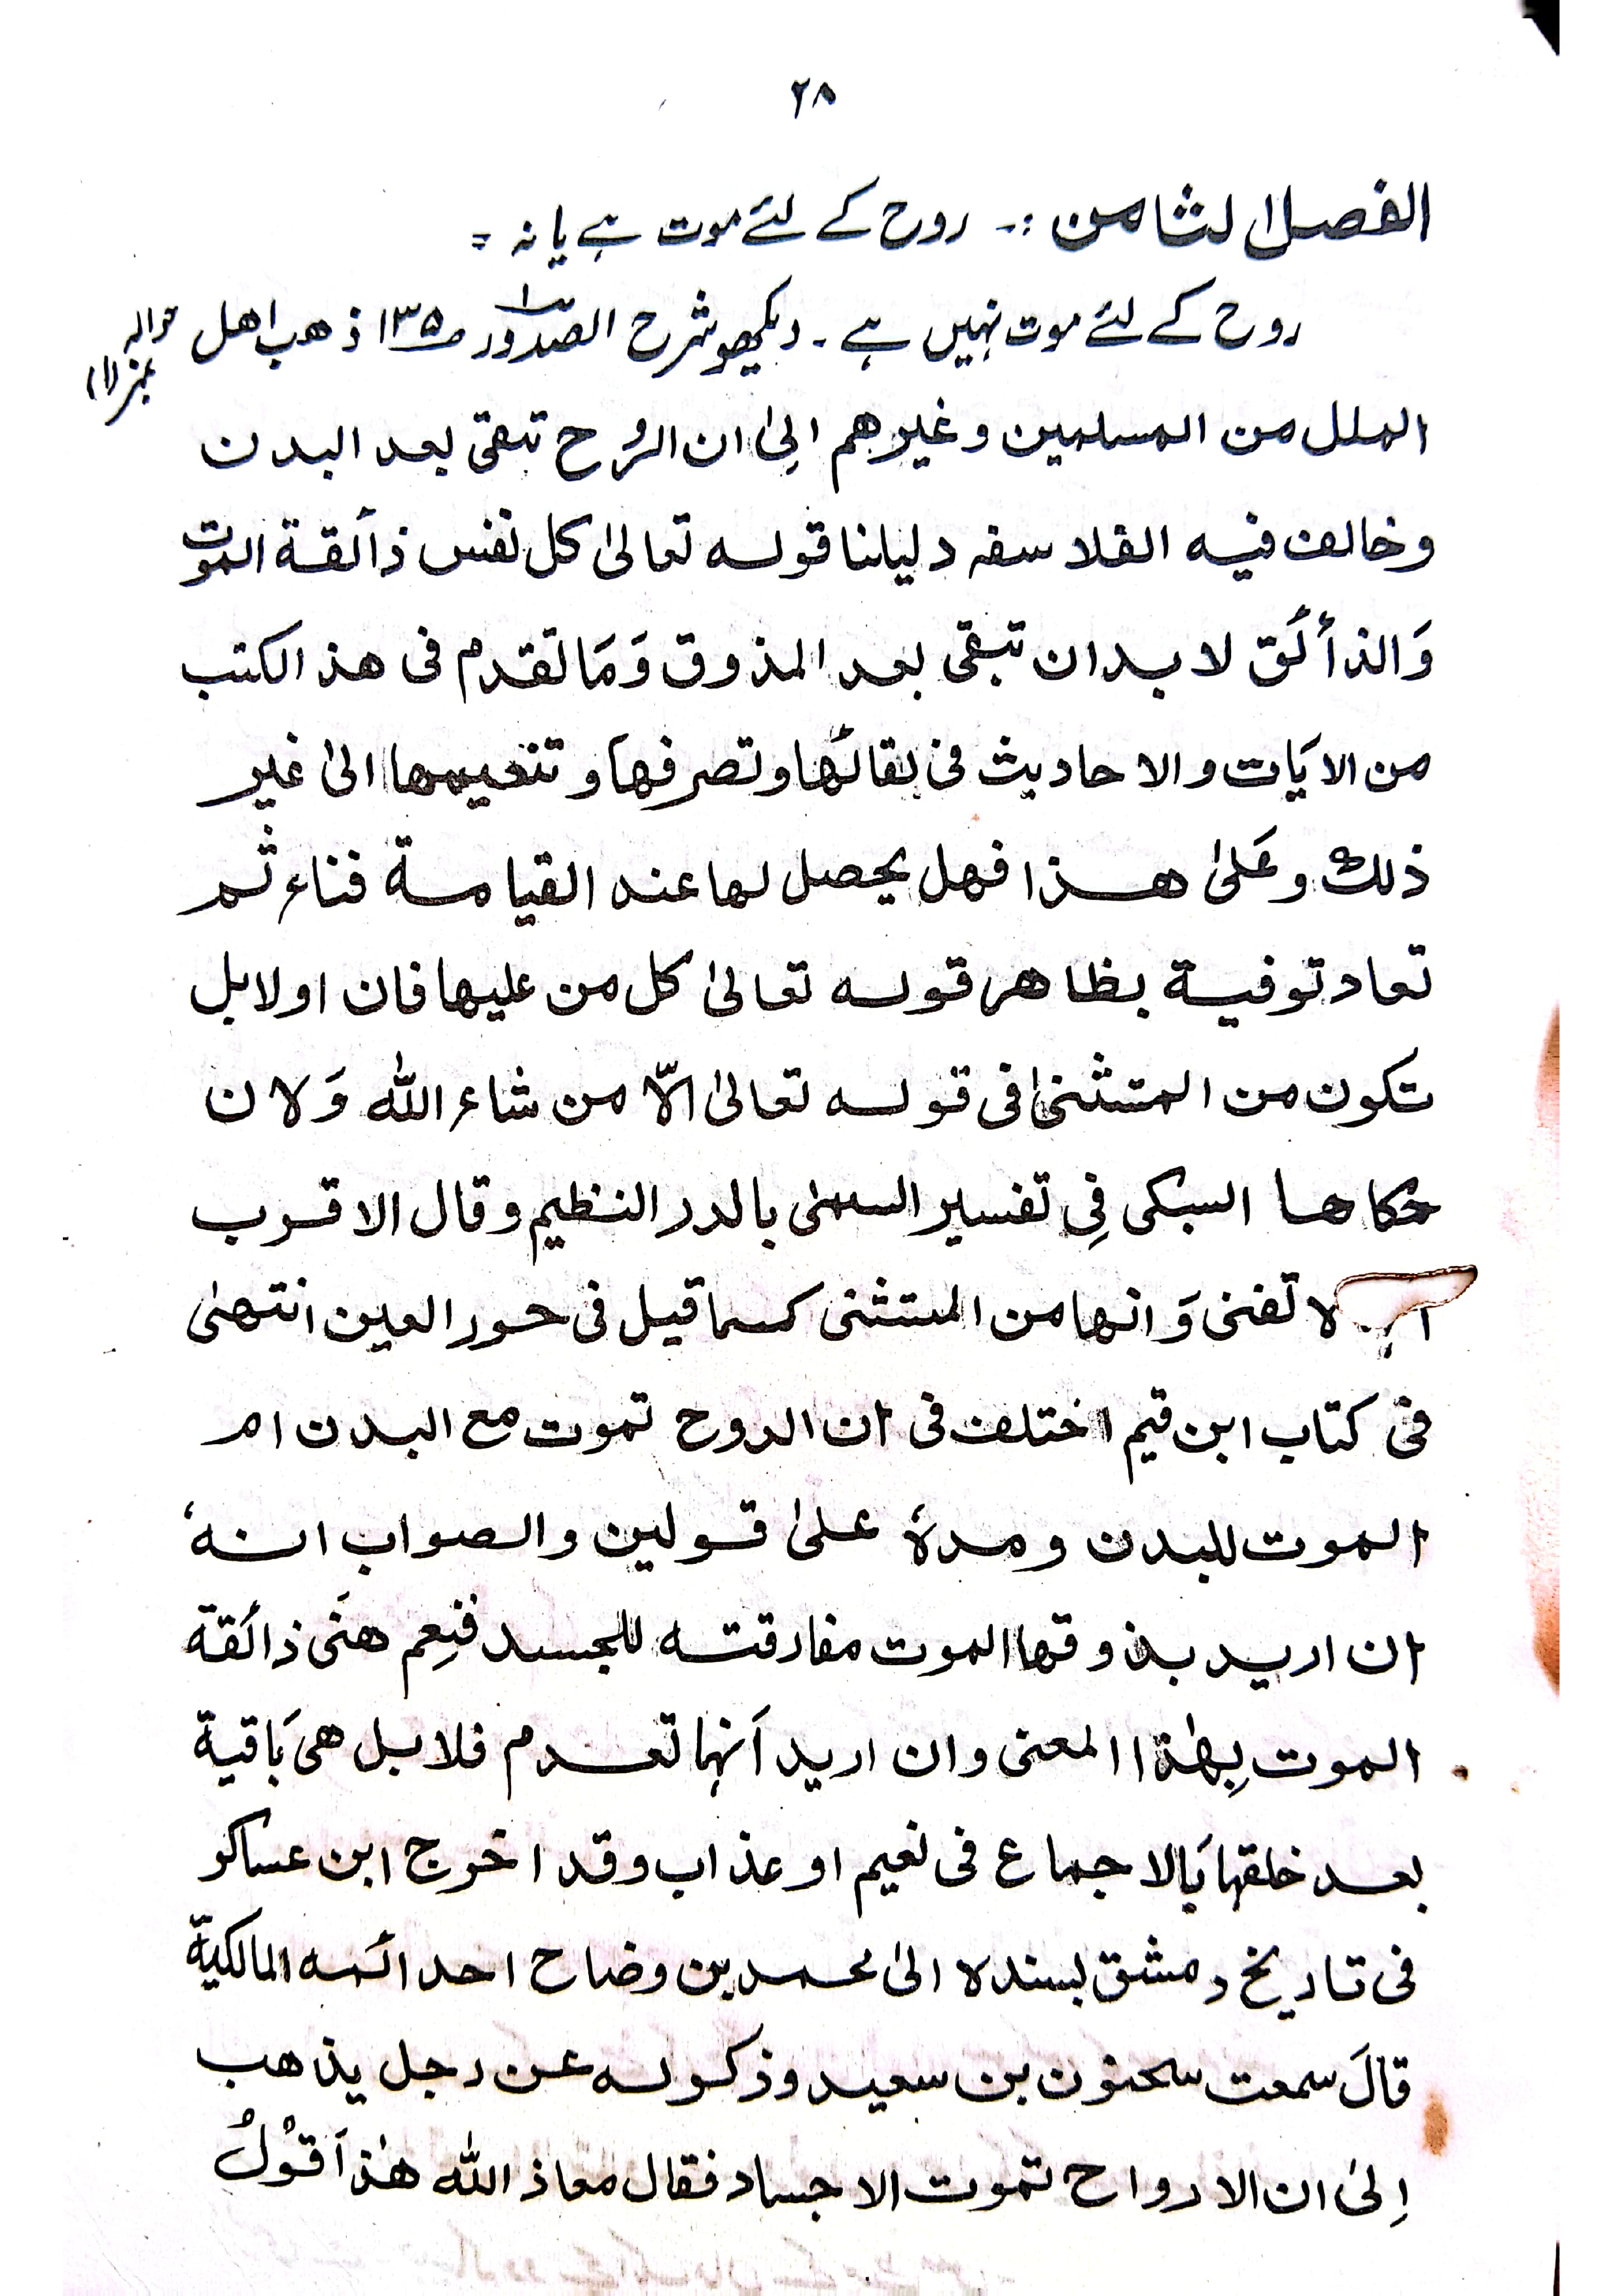 ۲۸
الفصل الثامن :۔ روح کے لئے موت ہے یا نہ =
روح کے لئے موت نہیں ہے ۔ دیکھو شرح الصدور ص ۱۳۵ ذهب اهل
حوالہ نمبر (۱)
الملل من المسلمين وغيرهم الىٰ ان الروح تبقى بعد البدن
وخالف فيه الفلا سفہ دليلنا قوله تعالىٰ كل نفس ذائقة الموت
وَالذائق لا بد ان تبقى بعد المذوق وَمَا تقدم فى هذ الكتب
من الايَات والاحاديث فى بقائها وتصرفها وتنعيمها الىٰ غير
ذلك وعَلىٰ هذا فهل يحصل لها عند القيامة فناء ثم
تعاد توفية بظاهر قوله تعالىٰ كل من عليها فان اولا بل
تكون من المتثنىٰ فى قوله تعالىٰ الّا من شاء الله وَلان
حكاها السبكى فِى تفسير السمىٰ بالدر النظيم وقال الاقرب
لا تفنى وَانها من المستثنى كما قيل فى حور العين انتهىٰ
فى كتاب ابن قيم اختلف فى ان الروح تموت مع البدن ام
الموت للبدن وحدهٗ علىٰ قولين والصواب انهٗ
ان اريد بذوقها الموت مفارقته للجسد فنِعم هىَ ذائقة
الموت بِهٰذا المعنى وان اريد اَنها تعدم فلا بل هى بَاقية
بعد خلقها بَالاجماع فى نعيم او عذاب وقد اخرج ابن عساكر
فى تاريخ دمشق بسنده الىٰ محمد بن وضاح احد ائمه المالكيةّ
قالَ سمعت سحنون بن سعيد وذكر له عن رجل يذهب
اِلىٰ ان الارواح تموت الاجساد فقال معاذ الله هٰذا قوْلُ